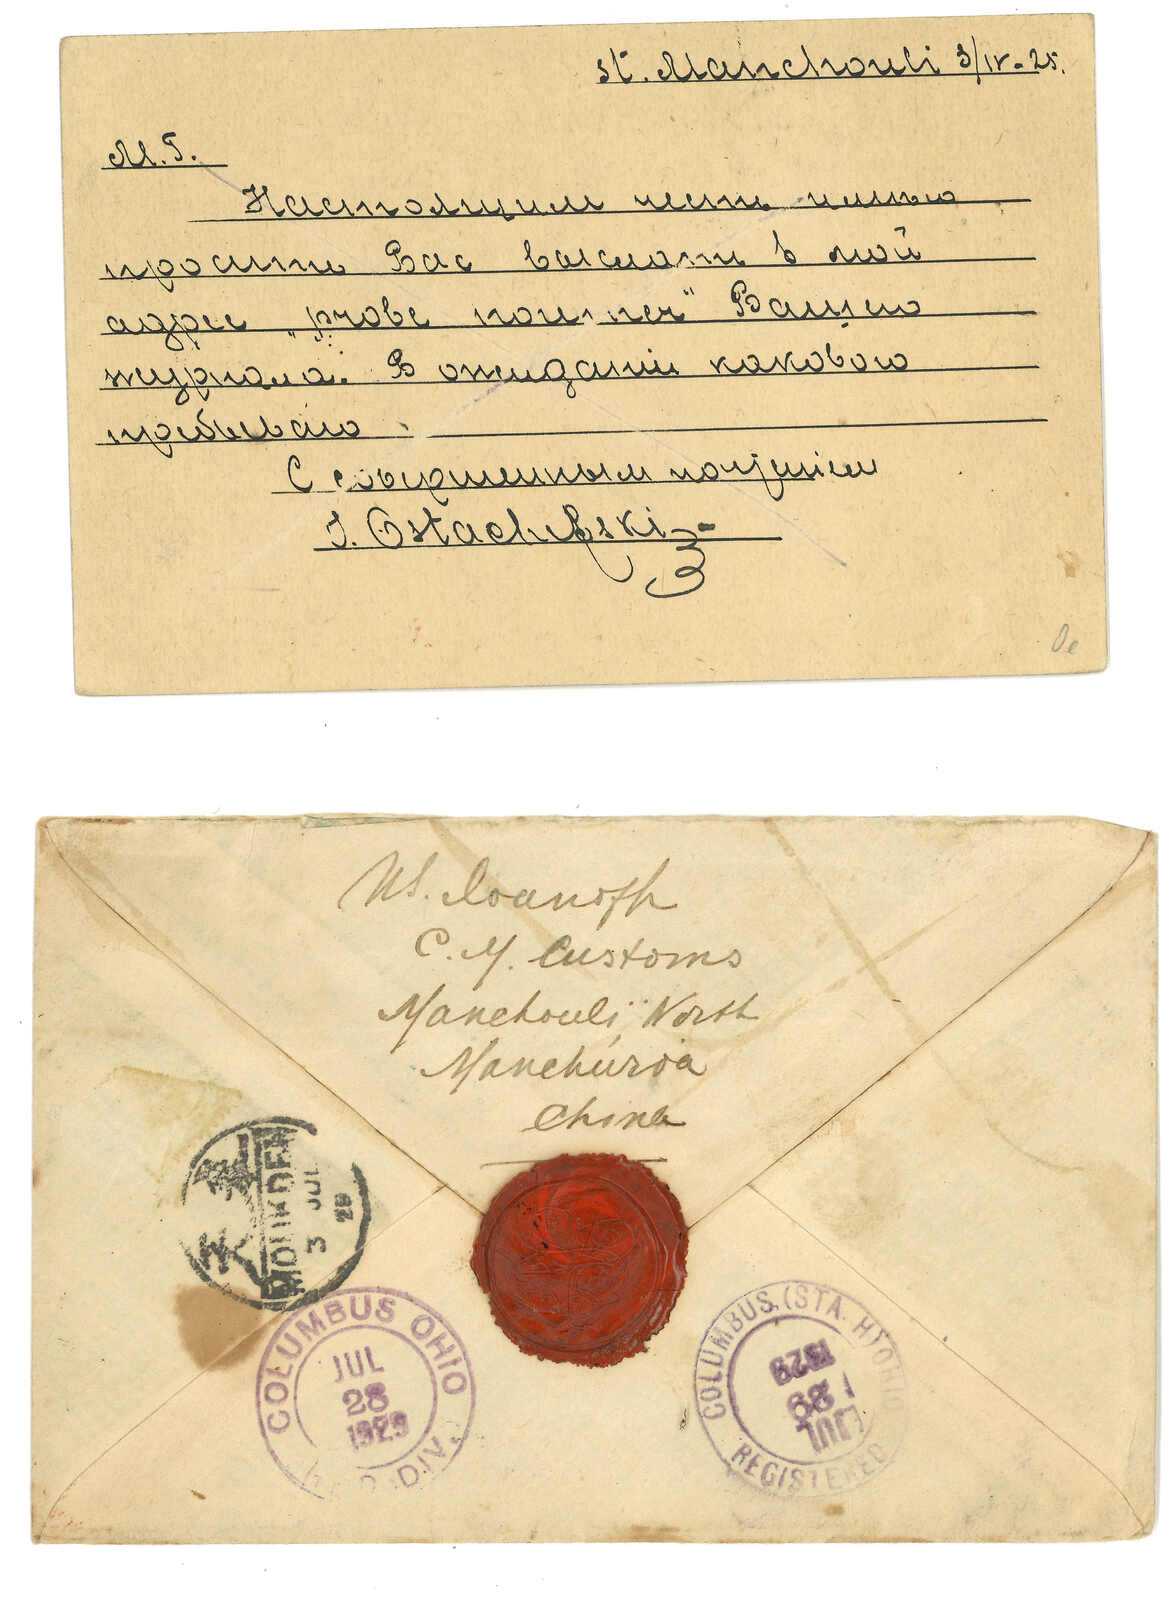 st. Manchouli 3/IV-25.
М.Г.
Настоящим честь имею
просить Вас выслать в мой
адрес „probe Вашего
журнала. В ожидании какового
пребываю
С совершенным почтением
J. Ostachefski
Joanoff
C. M. Customs
Manchouli, North
Manchuria
China
MOUKDEN
3 JUL 29
COLUMBUS OHIO
JUL
28
1929
DIV.
COLUMBUS, (STA. H) OHIO
JUL
29
1929
REGISTERED